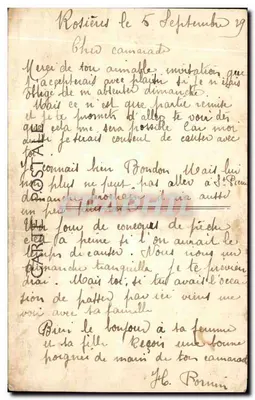 Rosières le 5 Septembre 29
Cher camarade
Merci de ton aimable invitation que
j'accepterais avec plaisir si je n'étais
obligé de m'absenter dimanche.
Mais ce n'est que partie remise
et je promets d'aller te voir dès
que cela me sera possible. Car moi
aussi je serais content de causer avec
toi.
connais bien Bondon. Mais lui
non plus ne peut pas aller à St
dimanche prochain
un peu
jour de concours de pêche
la peine si l'on aurait le
temps de causer. Nous nous
dimanche tranquille. Je te
Mais toi, si tu avais l'occa
sion de passer par ici viens me
voir avec ta famille
Bien le bonjour à ta femme
et ta fille. Reçois une bonne
poignée de main de ton camarade
H.
CARTE POSTALE